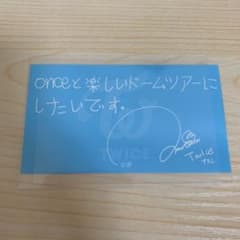 onceと楽しいドームツアーに
したいです。
TWICE
Twice